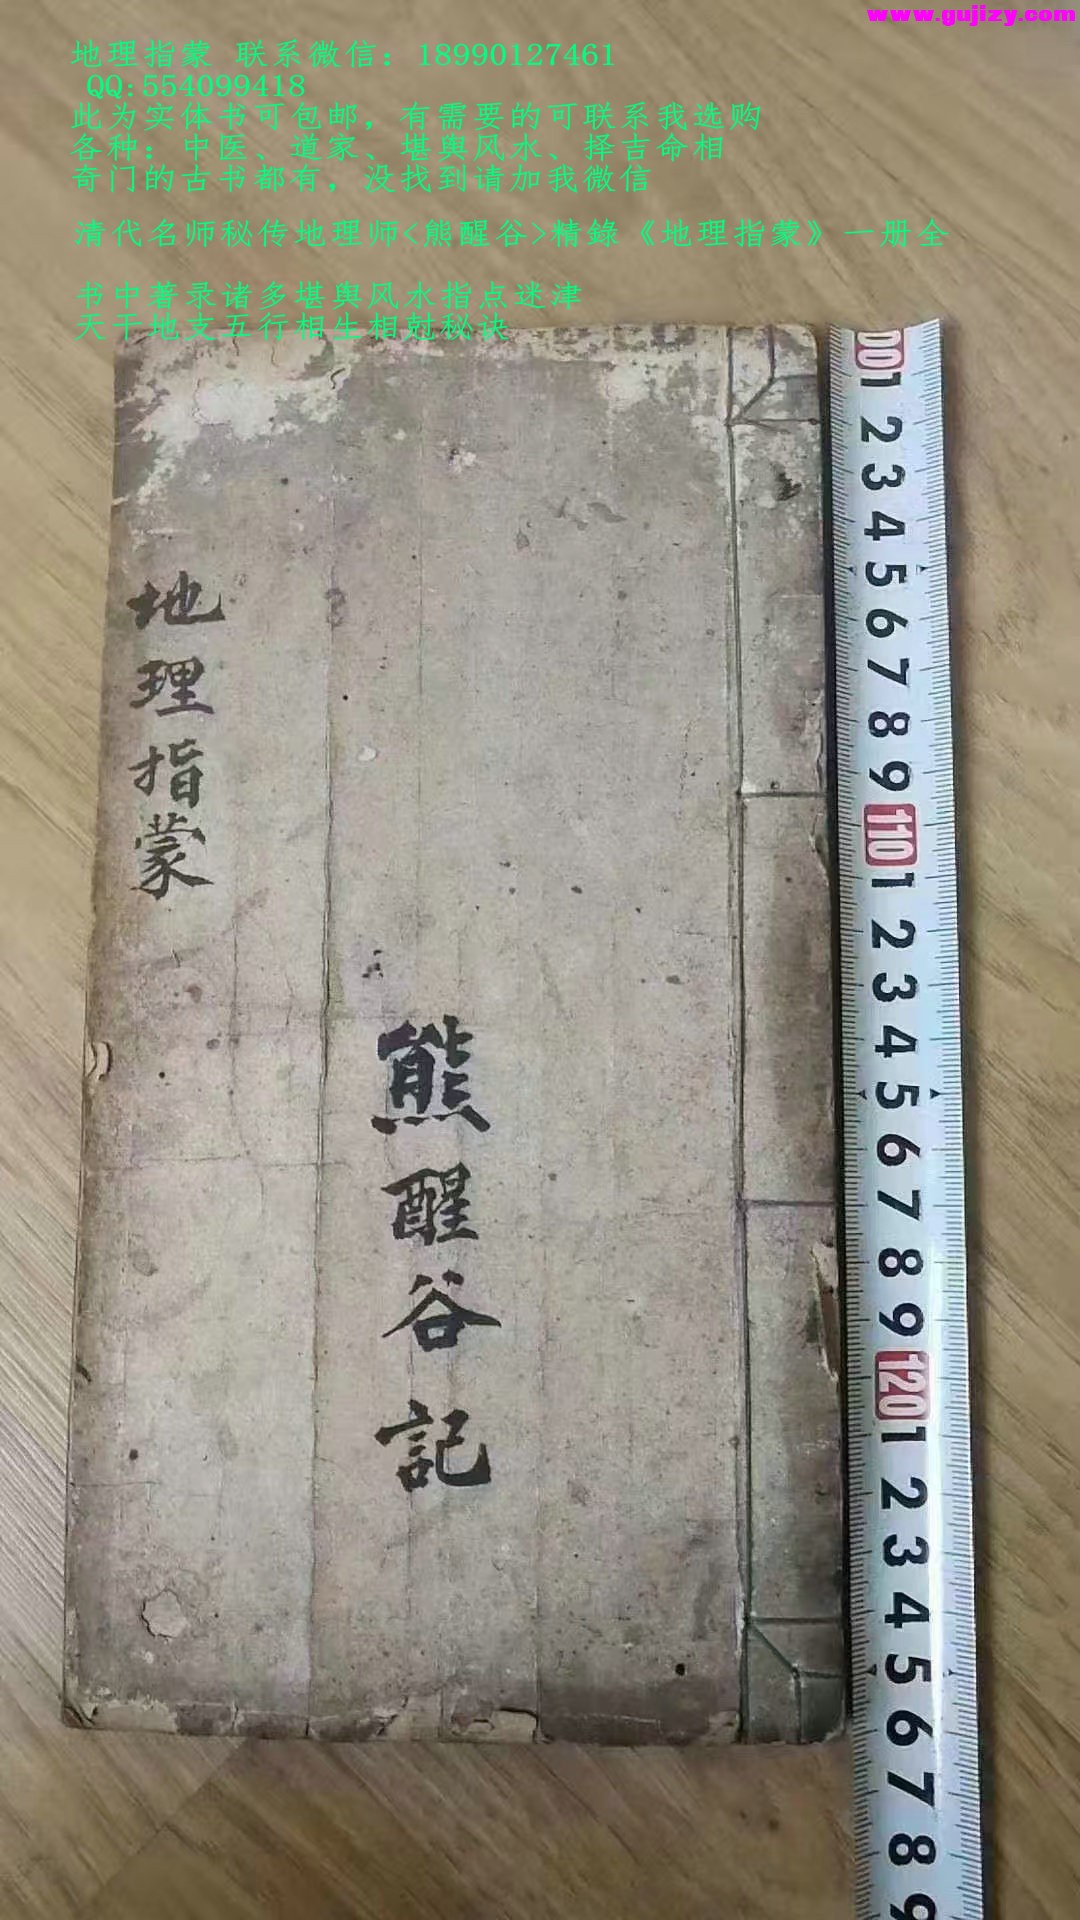 www.gujizy.com
地理指蒙 联系微信：18990127461
QQ:554099418
此为实体书可包邮，有需要的可联系我选购
各种：中医、道家、堪舆风水、择吉命相
奇门的古书都有，没找到请加我微信
清代名师秘传地理师<熊醒谷>精錄《地理指蒙》一册全
书中著录诸多堪舆风水指点迷津
天干地支五行相生相尅秘诀
地理指蒙
熊醒谷記
1
2
3
4
5
6
7
8
9
110
1
2
3
4
5
6
7
8
9
120
1
2
3
4
5
6
7
8
9